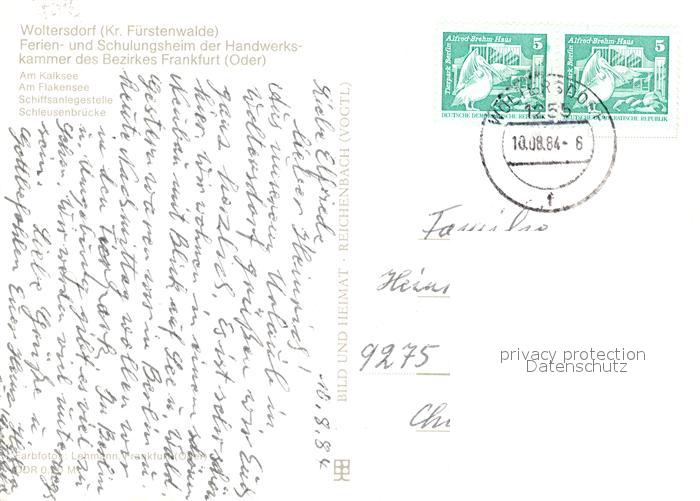 Woltersdorf (Kr. Fürstenwalde)
Ferien- und Schulungsheim der Handwerks-
kammer des Bezirkes Frankfurt (Oder)
Am Kalksee
Am Flakensee
Schiffsanlegestelle
Schleusenbrücke
10.8.84
Liebe Elfriede,
lieber Heinrich!
Aus unserem Urlaub in
Woltersdorf grüßen wir Euch
ganz herzlich. Es ist sehr schön
hier, wir wohnen in einem schönen
mit Blick auf See u. Wald.
Gestern waren wir in Berlin u.
heute Nachmittag wollen wir
in den Tierpark. In Berlin
u. Umgebung gibt es viel zu
sehen. Wir werden viel unterwegs
sein. Liebe Grüße u.
Gottbefohlen Eure
Farbfotos: Lehmann, Frankfurt (Oder)
DDR 0, M
BILD UND HEIMAT · REICHENBACH (VOGTL)
Tierpark Berlin
Alfred-Brehm-Haus
5
DEUTSCHE DEMOKRATISCHE REPUBLIK
Tierpark Berlin
Alfred-Brehm-Haus
5
DEUTSCHE DEMOKRATISCHE REPUBLIK
WOLTERSDORF
1255
10.08.84- 6
f
Familie
Hein
9275
privacy protection
Datenschutz